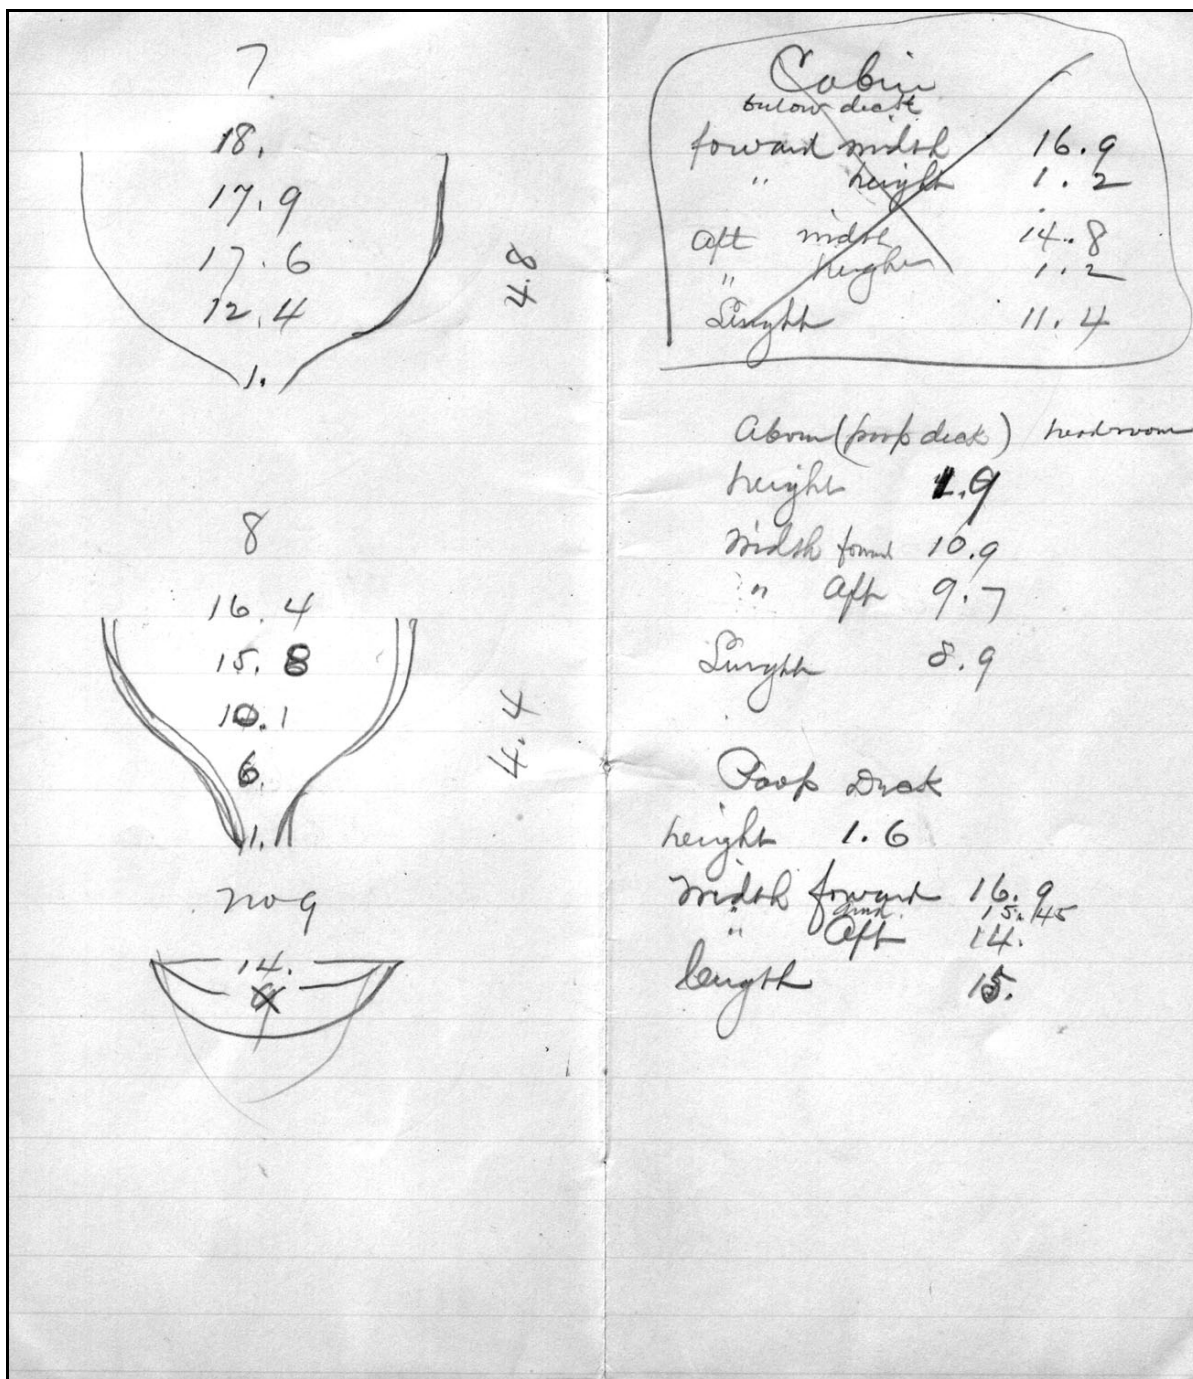 7
18.
17.9
17.6
12.4
1.
4.8
8
16.4
15.8
10.1
6.
1.
4.4
no 9
14.
9
Cabin
below deck
forward width 16.9
" height 1.2
Aft width 14.8
" height 1.2
Lenght 11.4
Above (poop deck) headroom
height 1.9
Width forward 10.9
" Aft 9.7
Lenght 8.9
Poop Deck
height 1.6
Width forward 16.9
" 15.45
" Aft 14.
length 15.